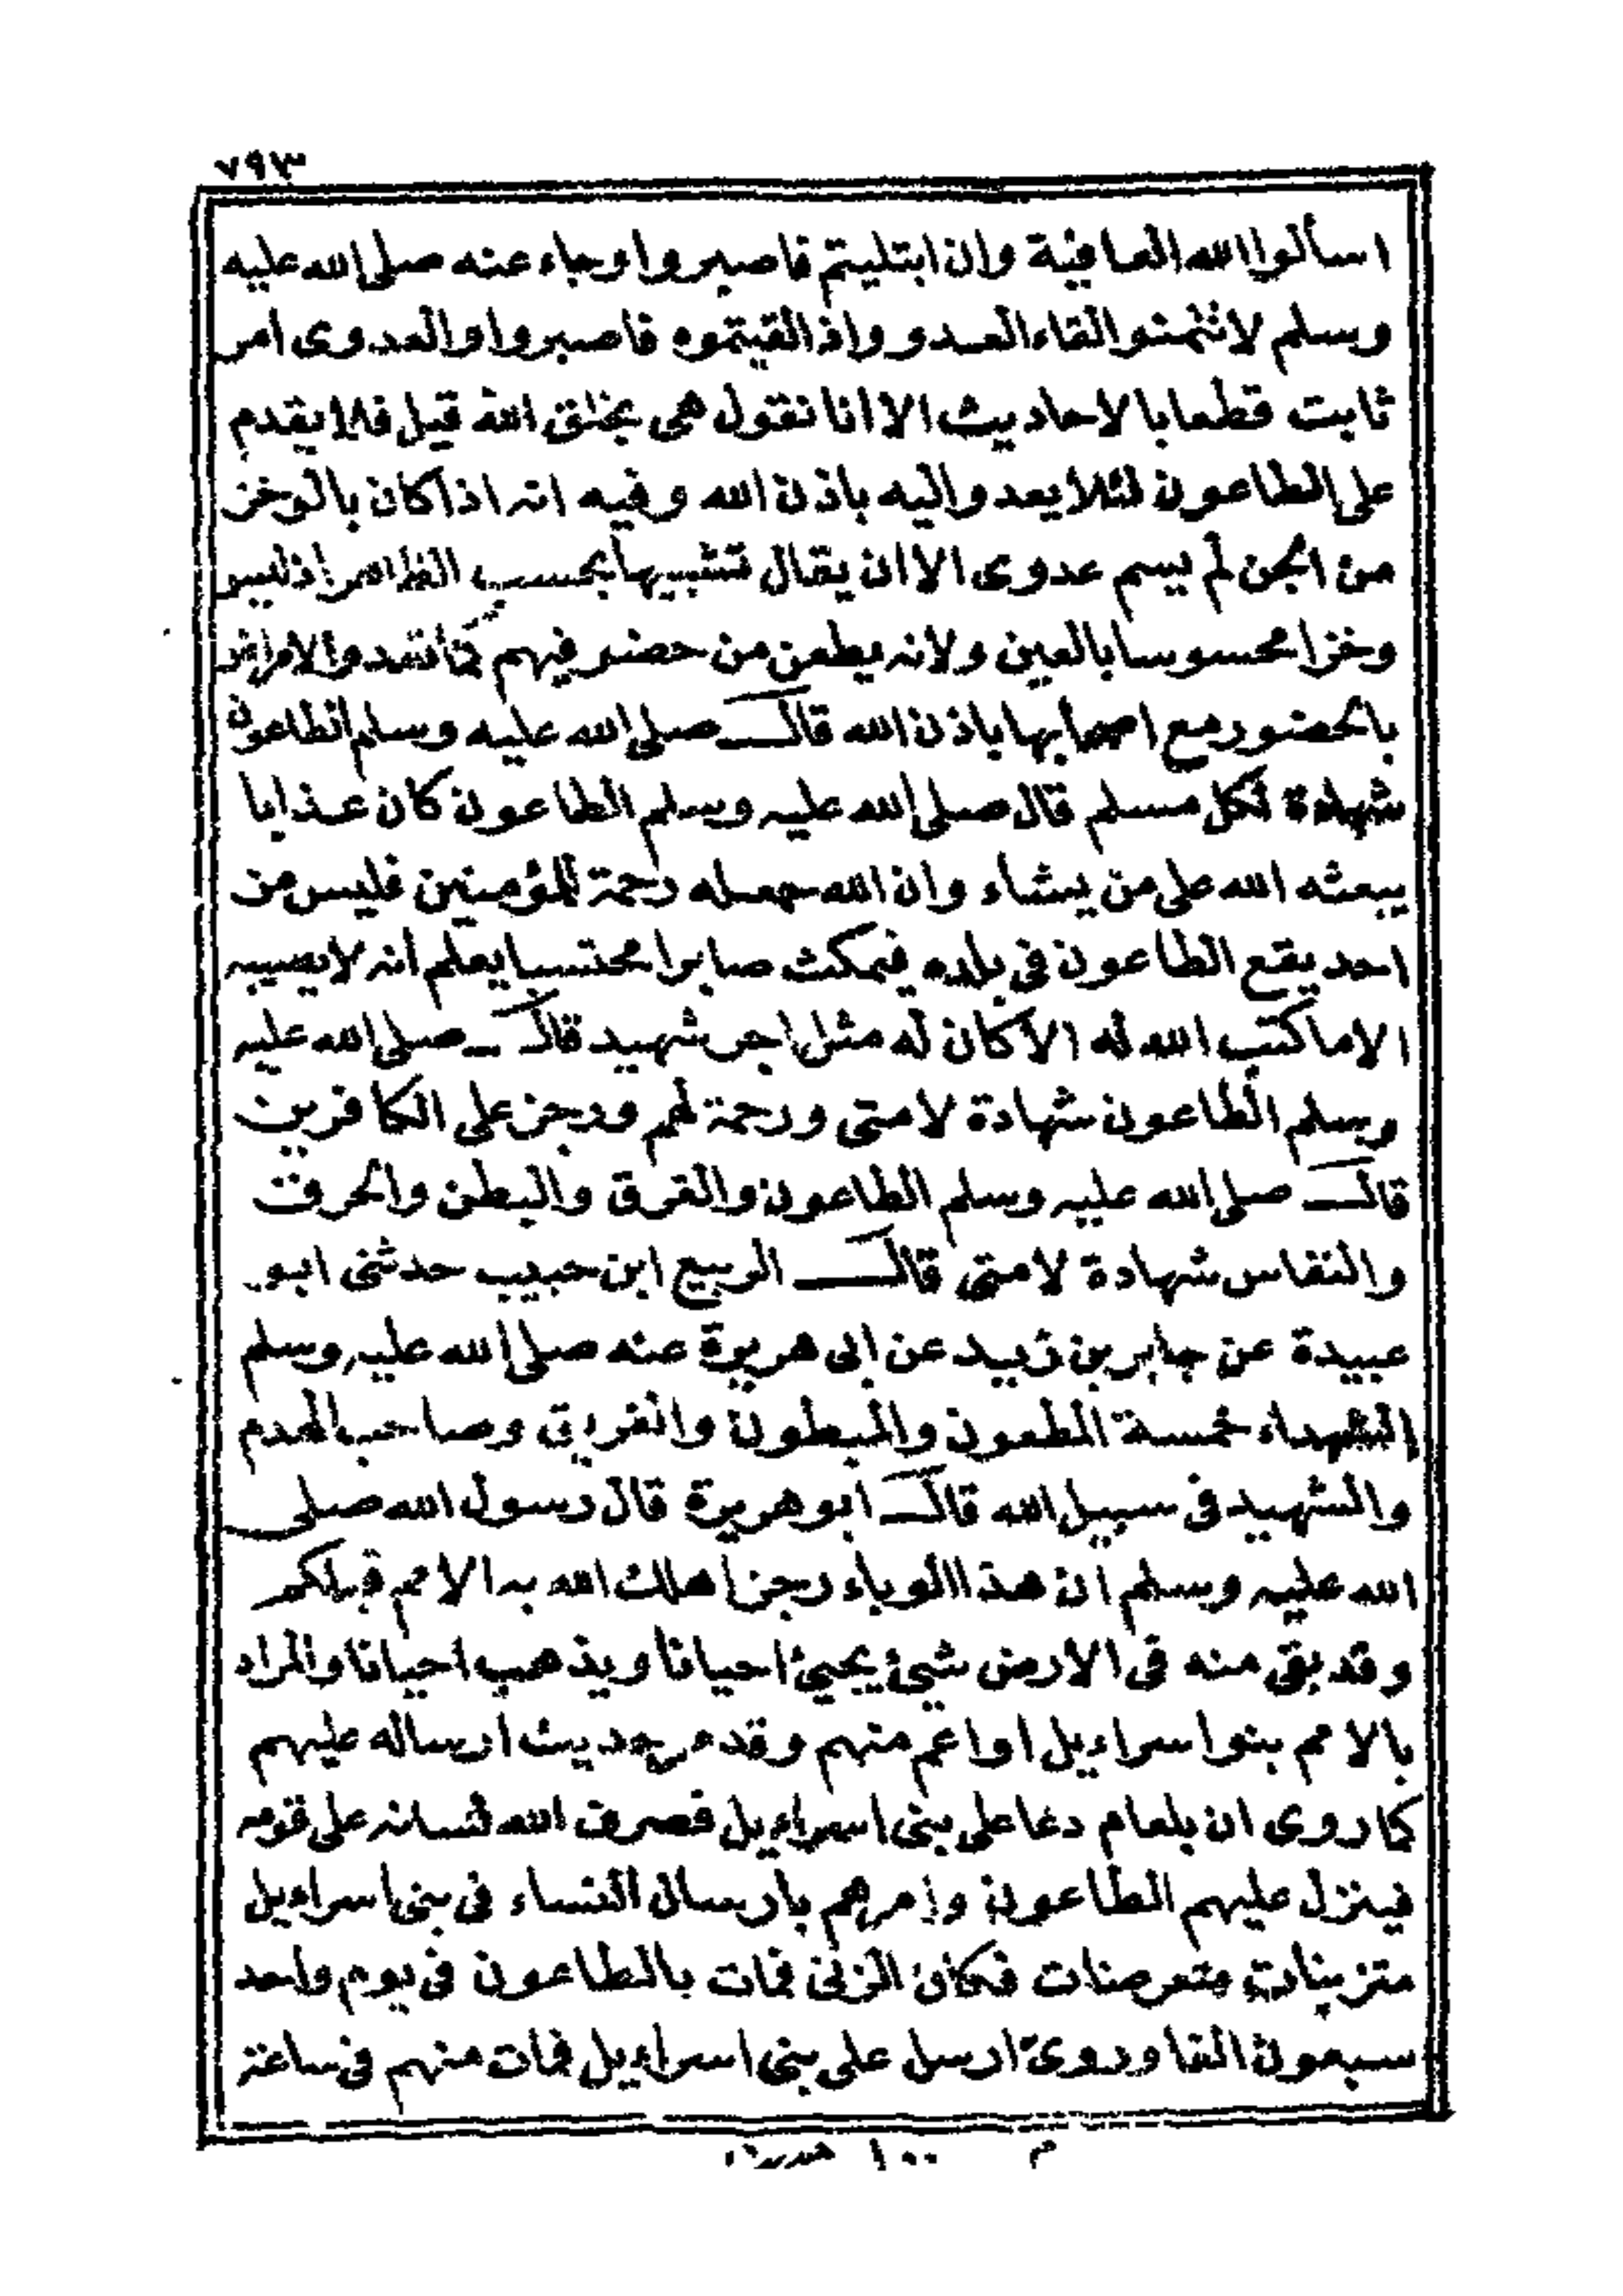 ٧٩٣
اسألوا الله العافية وان ابتليتم فاصبروا وجاء عنه صلى الله عليه
وسلم لا تتمنوا لقاء العدو واذا لقيتموه فاصبروا والعدوى امر
ثابت قطعا بالاحاديث الا انا نقول هى بخلق الله قيل فلا يقدم
على الطاعون لئلا يعدو اليه باذن الله وفيه انه اذا كان بالوخز
من الجن لم يسم عدوى الا ان يقال تشبيها بحسب الظاهر اذ ليس
وخزا محسوسا بالعين ولانه يطعن من حضر فيهم كما تعدوا الامراض
بالحضور مع اصحابها باذن الله قال صلى الله عليه وسلم الطاعون
شهادة لكل مسلم قال صلى الله عليه وسلم الطاعون كان عذابا
يبعثه الله على من يشاء وان الله جعله رحمة للمؤمنين فليس من
احد يقع الطاعون فى بلده فيمكث صابرا محتسبا يعلم انه لا يصيبه
الا ما كتب الله له الا كان له مثل اجر شهيد قال صلى الله عليه
وسلم الطاعون شهادة لامتى ورحمة لهم ورجز على الكافرين
قال صلى الله عليه وسلم الطاعون والغرق والبطن والحرق
والنفاس شهادة لامتى قال الربيع ابن حبيب حدثنى ابو
عبيدة عن جابر بن زيد عن ابى هريرة عنه صلى الله عليه وسلم
الشهداء خمسة المطعون والمبطون والغريق وصاحب الهدم
والشهيد فى سبيل الله قال ابو هريرة قال رسول الله صلى
الله عليه وسلم ان هذا الوباء رجز اهلك الله به الامم قبلكم
وقد بقى منه فى الارض شيئ يجيئ احيانا ويذهب احيانا والمراد
بالامم بنوا سراءيل او اعم منهم وقد مر حديث ارساله عليهم
كما روى ان بلعام دعا على بنى اسراءيل فصرف الله لسانه على قومه
فينزل عليهم الطاعون وامرهم بارسال النساء فى بنى اسراءيل
متزينات متعرضات فكان الزنى فمات بالطاعون فى يوم واحد
سبعون الفا وروى ارسل على بنى اسراءيل فمات منهم فى ساعة
م ١٠٠